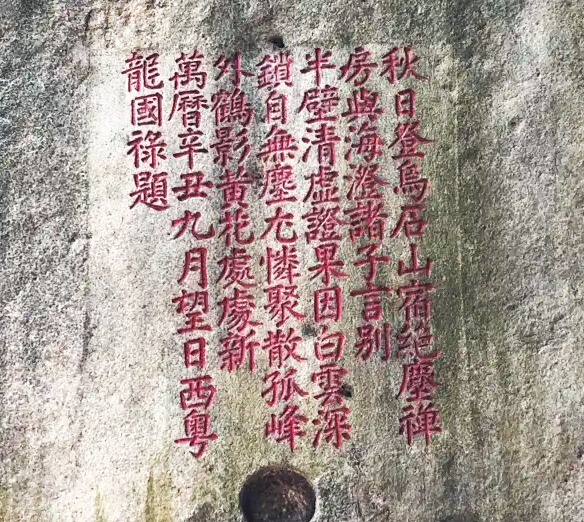 秋日登烏石山宿絶塵禅
房與海澄諸子言别
半壁清虚證果因白雲深
鎖自無塵尤憐聚散孤峰
外鶴影黄花處處新
萬曆辛丑九月望日西粵
龍國祿題